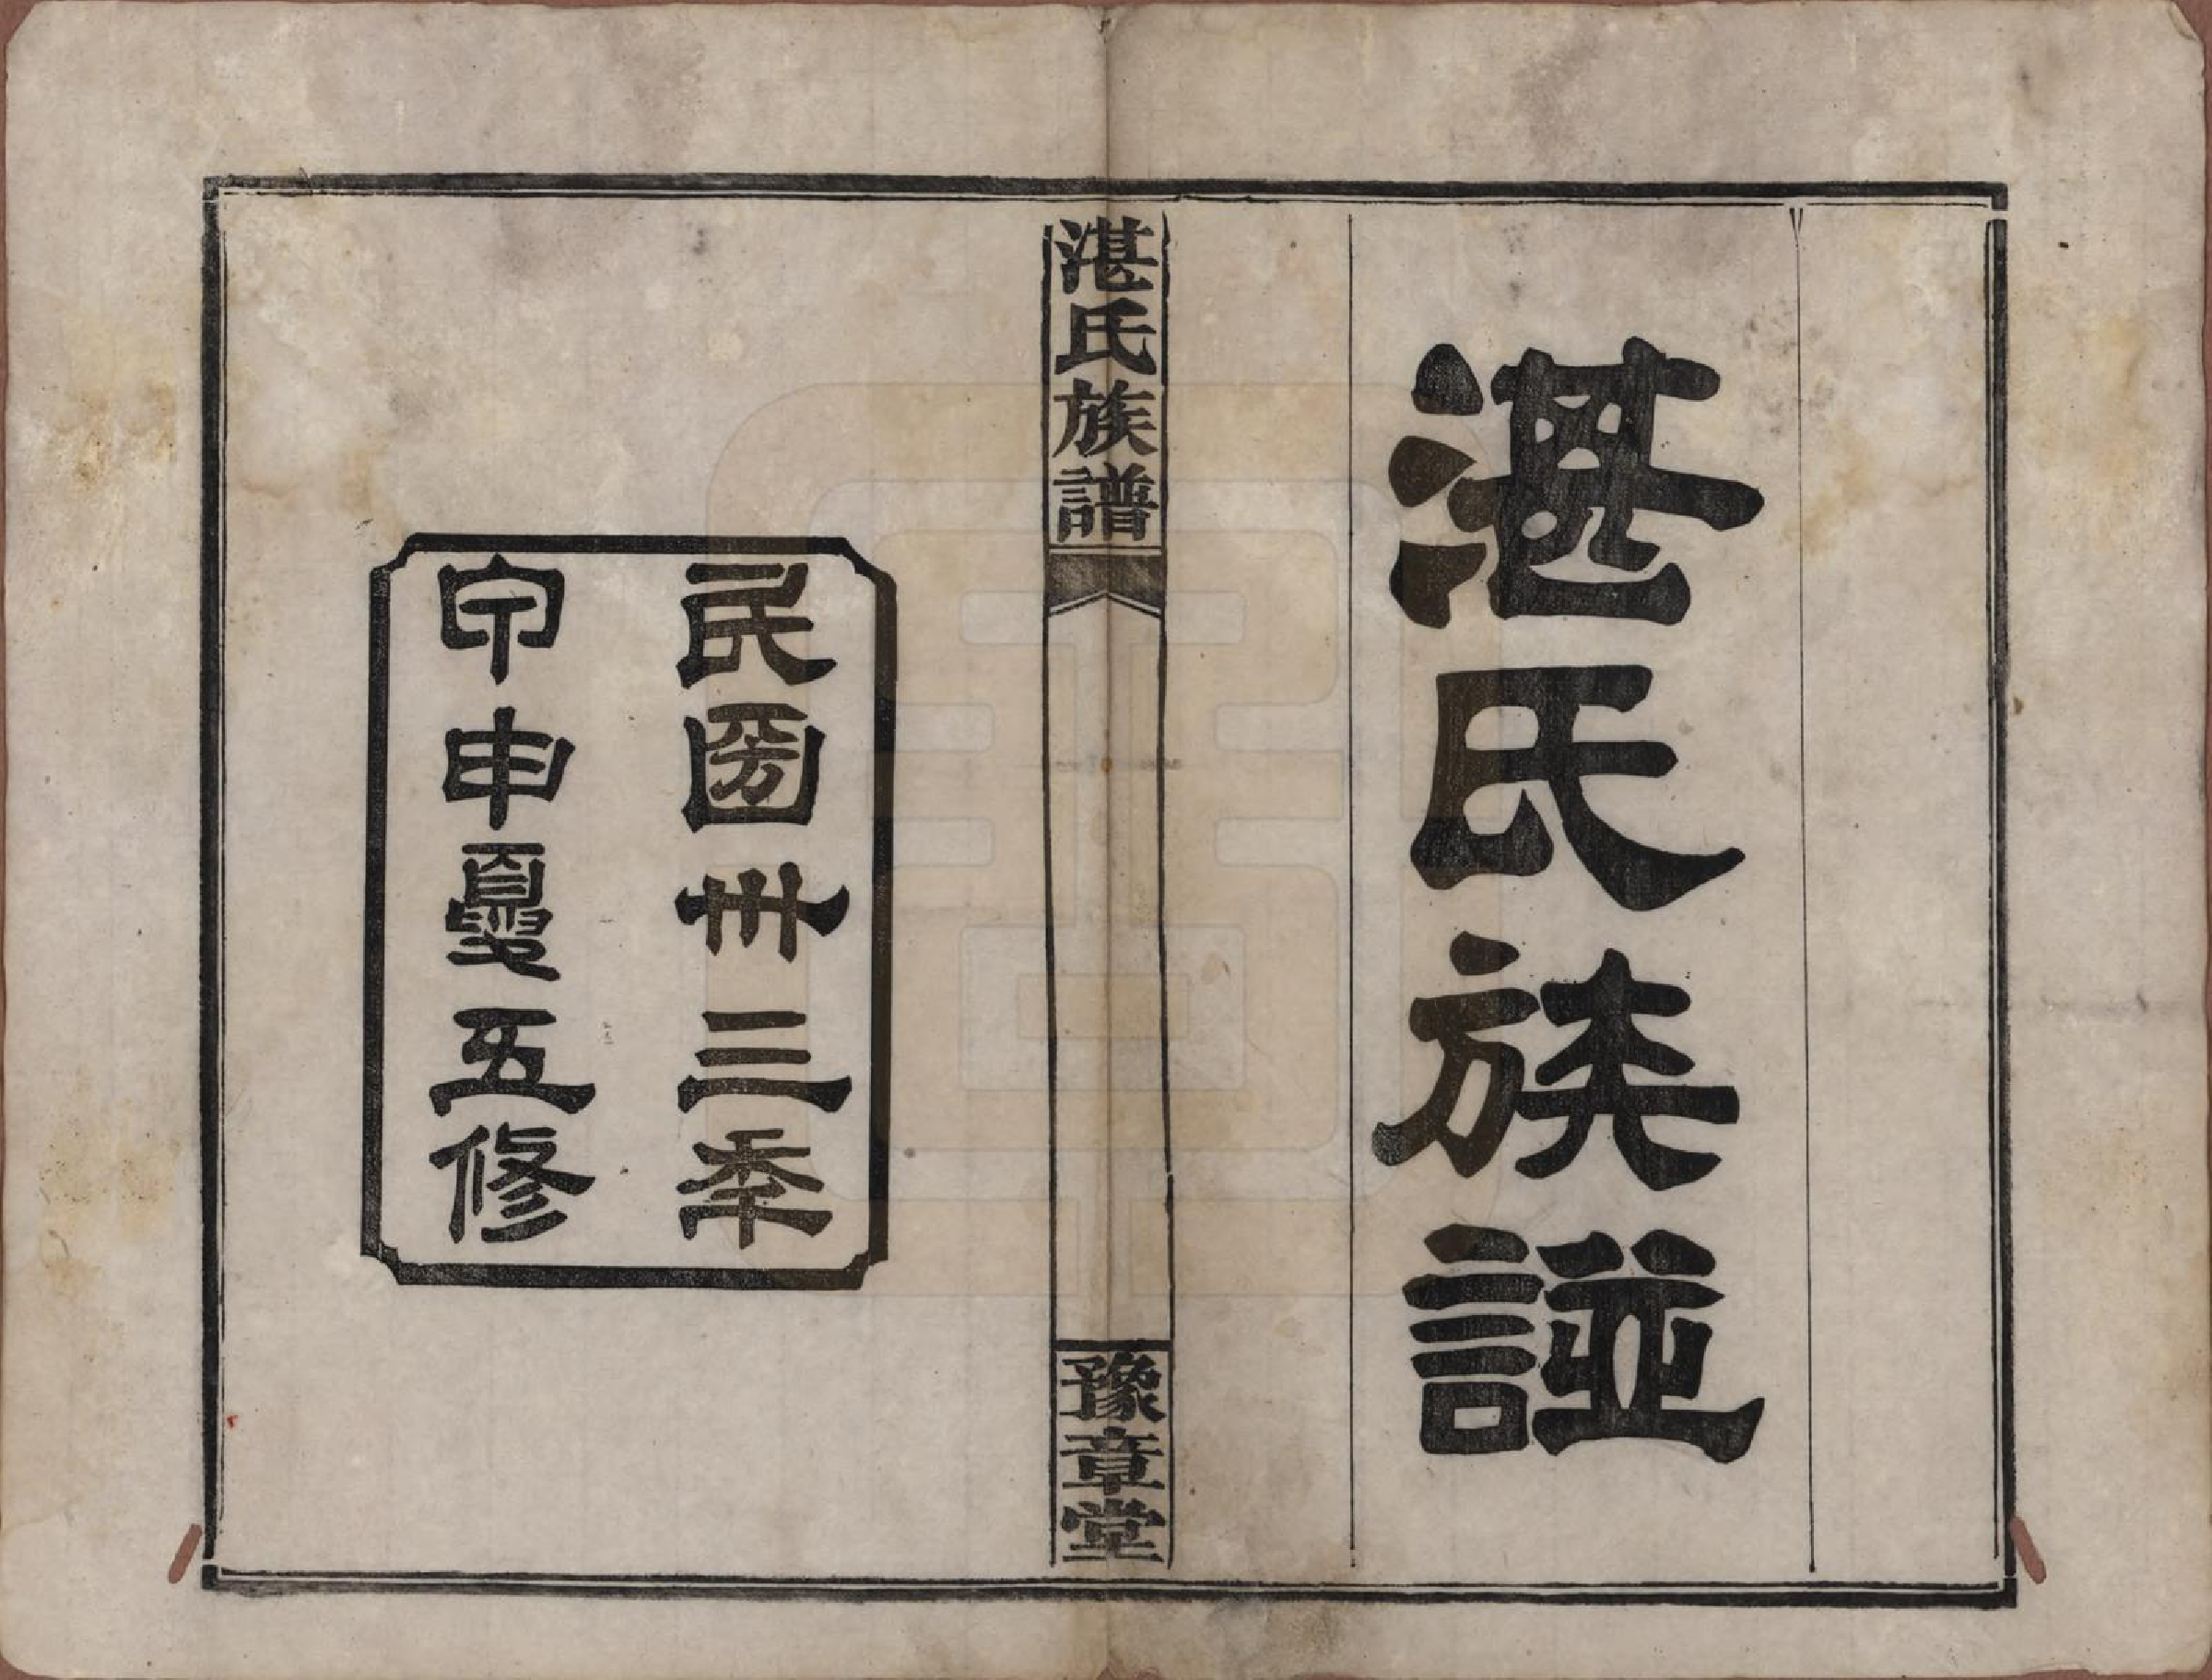 湛氏族諩
湛氏族譜
豫章堂
民圀卅三秊
甲申夏五修